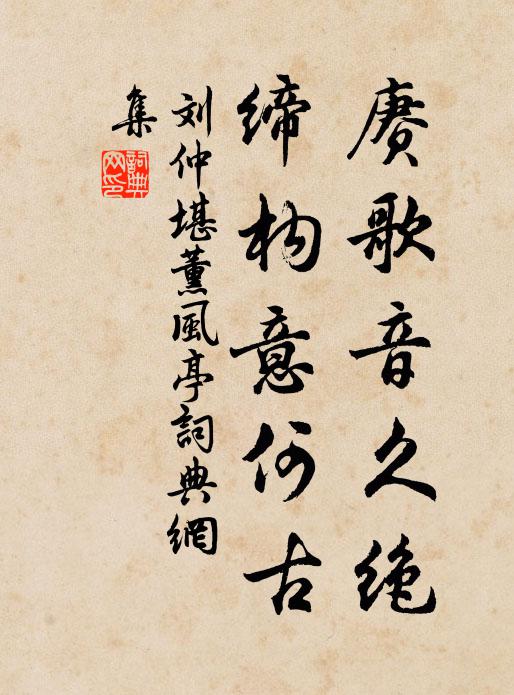 赓歌音久绝
缔构意何古
刘仲堪薰風亭詞典網
集
詞典
网印